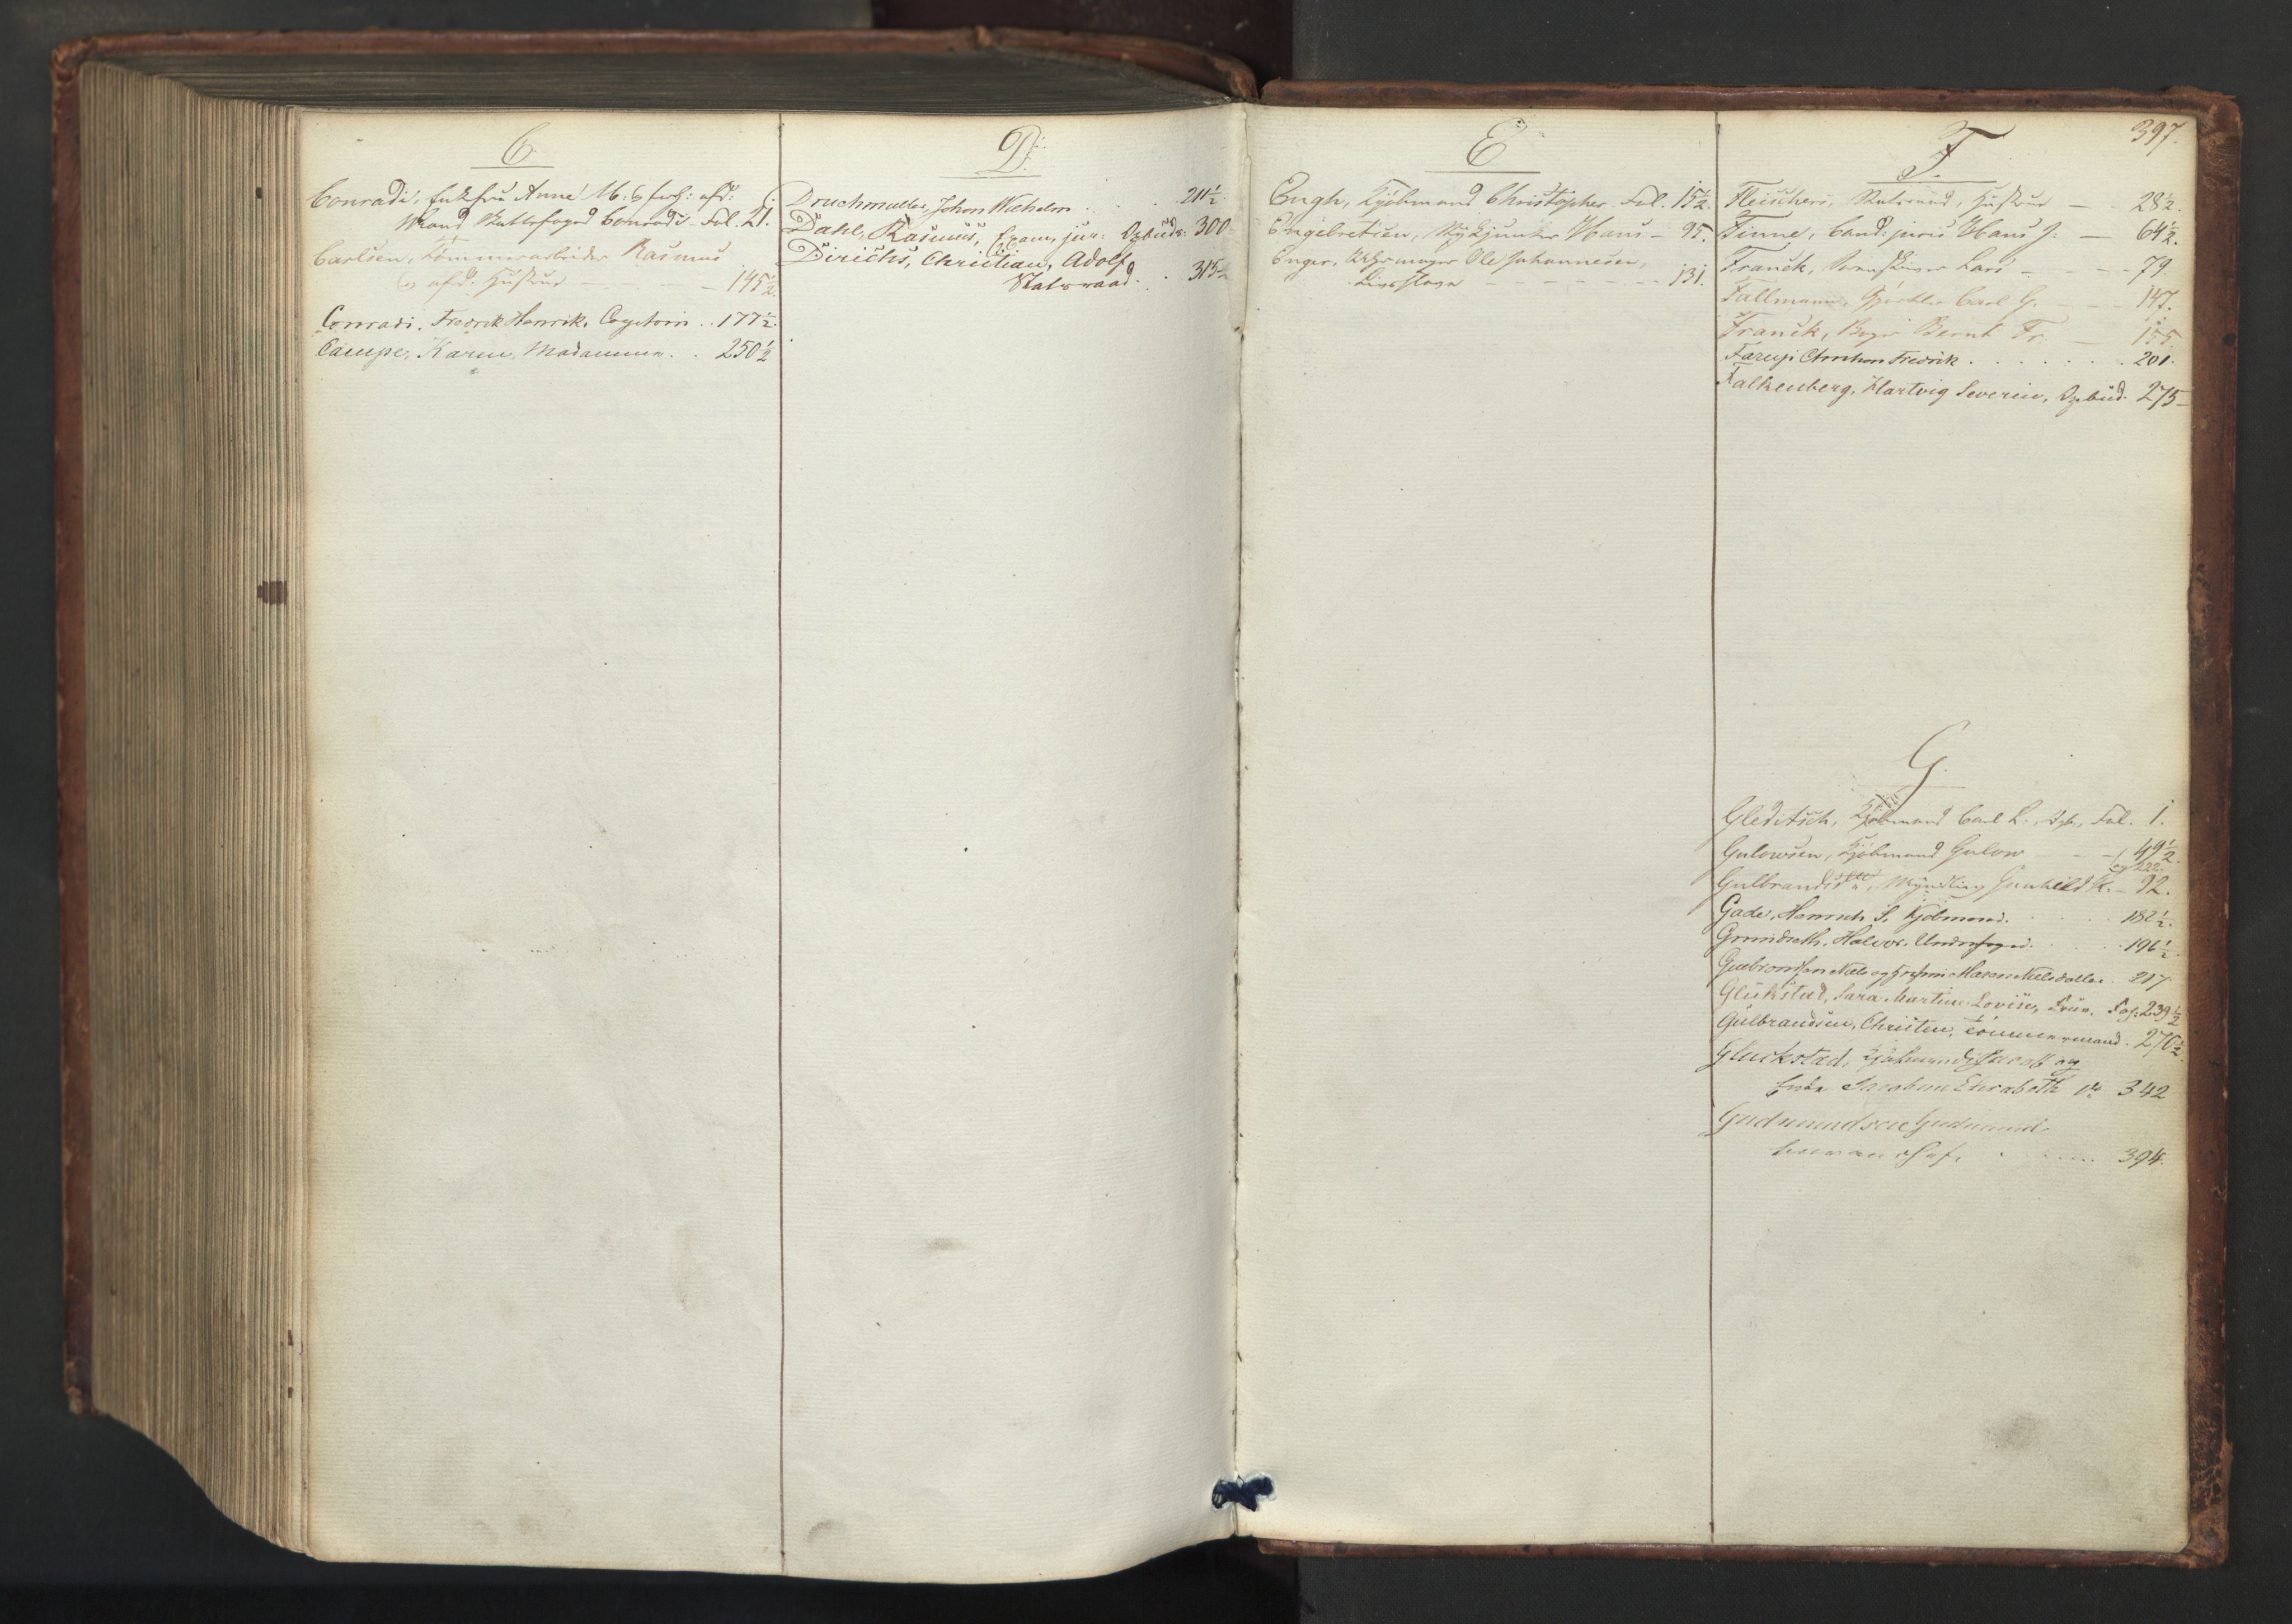 C.
Conradi, Enkefru Anne M. & hers: afd:
Mand Stadsfoged Conradi Fol. 21.
Carlsen, Tømmerarbeider Rasmus
& afd: Hustrue — 145½
Conradi, Fredrik Henrik, Capitain .. 177½.
Campe, Karen, Madamme . . 250½
D.
Druchmuller, Johan Wilhelm . . . 211½.
Dahl, Rasmus, Exam. jur: Dpbüds: 300
Dirichs, Christian, Adolf
Statsraad . . 315½
E
Engh, Kjøbmand Christopher Fol. 15½.
Engebretsen, Hans — 95.
Enger, Ole Johannesen,
— 131.
F.
397.
Fleischers, Statsraad, Hustrue — 28½.
Finne, Cand: juris Hans J. — 64½.
Franck, Lars — 79.
Fallmann, Carl G. — 147.
Franck, Bernt Fr. — 155.
Farup Christian Fredrik . . . . . 201.
Falkenberg, Hartvig Severin, Dpbüd. 275
G.
Gleditsch, Kjøbmand Carl L., Fol. 1.
Gulowsen, Kjøbmand Gulow — 49½.
og 222.
Gulbrandsen, Myndling Gunhild K. — 92.
Gade, Henrich S. Kjøbmand. . . . 182½.
Grundseth, Halvor, Underfoged. . . 196½.
Gulbrandsen Niels og Maren Nielsdatter . 217
Glückstad, Sara Martine Lovise, Frue. Fol. 239½
Gulbrandsen, Christen, Tömmermand. 276½.
Gluckstad, Kjøbmand Jacob og
Enke Jacobine Elisabeth do 342
Gudmundsen Gudmund
. . . . 394.